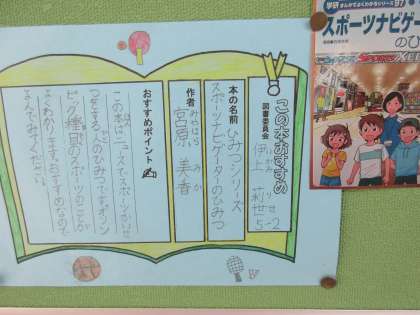 この本おすすめ
図書委員会
5-2
本の名前
ひみつシリーズ
スポーツナビゲーターのひみつ
作者
みやはら みか
宮原 美香
おすすめポイント
この本はニュースでスポーツかいせ
つをする人のひみつです。オリン
ピック種目のスポーツのことが
よくわかります。おすすめなので
よんでみてください。
学研 まんがでよくわかるシリーズ 97
スポーツナビゲー
のひ